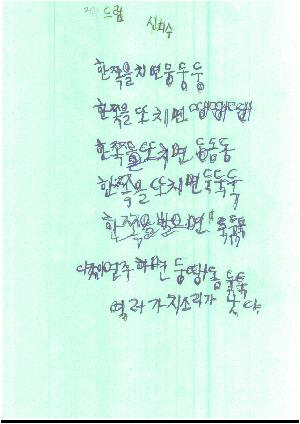 제목 드럼
신희수
한쪽을 치면 둥둥둥
한쪽을 또 치면 땡땡땡
한쪽을 또 치면 둠둠둠
한쪽을 또 치면 둑둑둑
한쪽을 밟으면 둑둑둑
연주 하면 둥땡둠둑둑
여러 가지 소리가 낫다